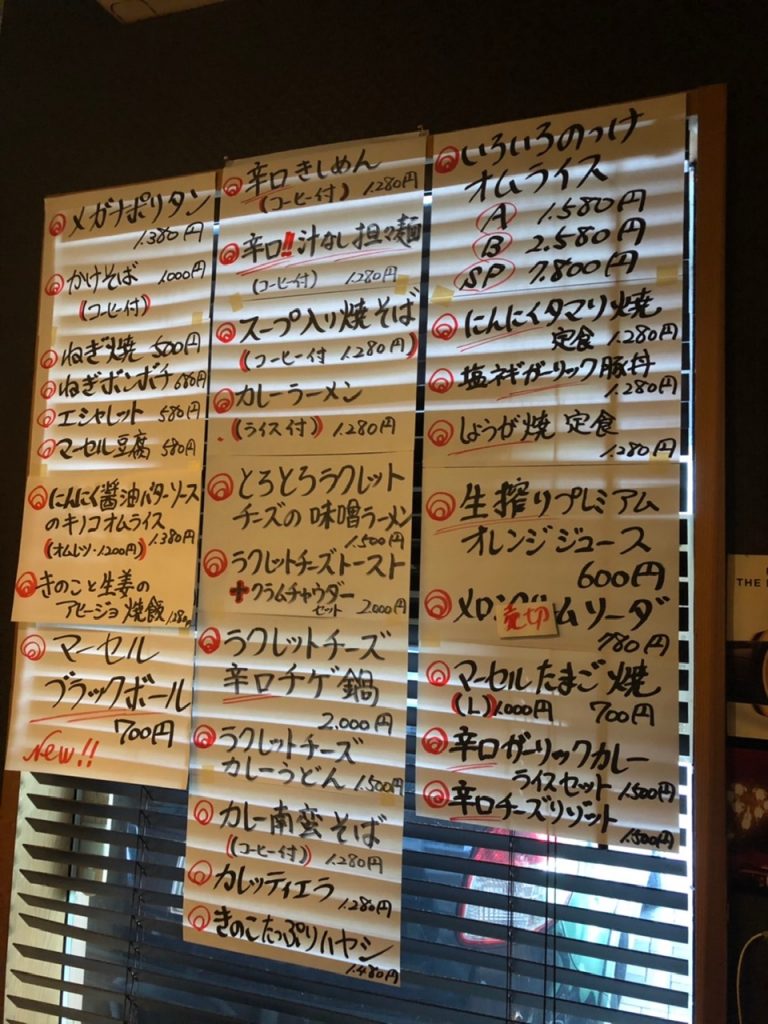 メガナポリタン
1.380円
かけそば 1.000円
(コーヒー付)
ねぎ焼 500円
ねぎボンボチ 680円
エシャレット 580円
マーセル豆腐 580円
にんにく醤油バターソース
のキノコオムライス
(オムレツ・1200円) 1.380円
きのこと生姜の
アヒージョ焼飯 1.180円
マーセル
ブラックボール
700円
New!!
辛口きしめん
(コーヒー付) 1.280円
辛口!!汁なし担々麺
(コーヒー付) 1.280円
スープ入り焼そば
(コーヒー付 1.280円)
カレーラーメン
(ライス付) 1.280円
とろとろラクレット
チーズの味噌ラーメン
1.500円
ラクレットチーズトースト
+クラムチャウダー
セット 2.000円
ラクレットチーズ
辛口チゲ鍋
2.000円
ラクレットチーズ
カレーうどん 1.500円
カレー南蛮そば
(コーヒー付) 1.280円
カレッティエラ
1.280円
きのこたっぷりハヤシ
1.480円
いろいろのっけ
オムライス
A 1.580円
B 2.580円
SP 7.800円
にんにくタマリ焼
定食 1.280円
塩ネギガーリック豚丼
1.280円
しょうが焼 定食
1.280円
生搾りプレミアム
オレンジジュース
600円
メロン 売切 ムソーダ
780円
マーセルたまご焼
(L) 1.000円 700円
辛口ガーリックカレー
ライスセット 1.500円
辛口チーズリゾット
1.500円
THE